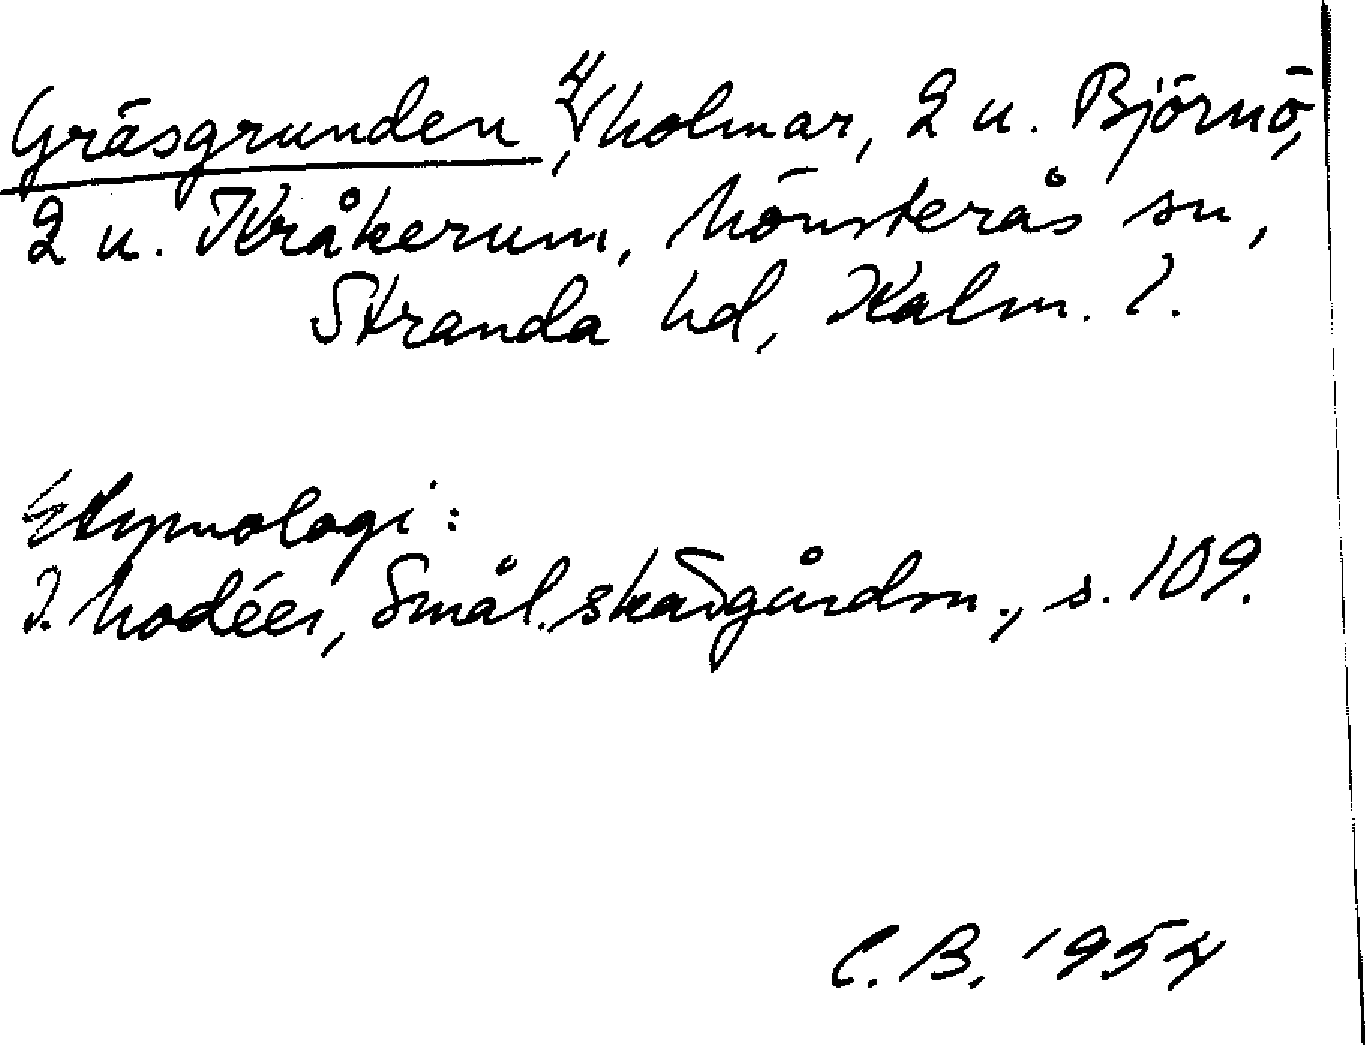 Gräsgrunden, 4 holmar, 2 u. Björnö,
2 u. Kråkerum, Mönsterås sn,
Stranda hd, Kalm. l.
Etymologi:
I. Modéer, Smål. skärgårdsn., s. 109.
C. B. 1954